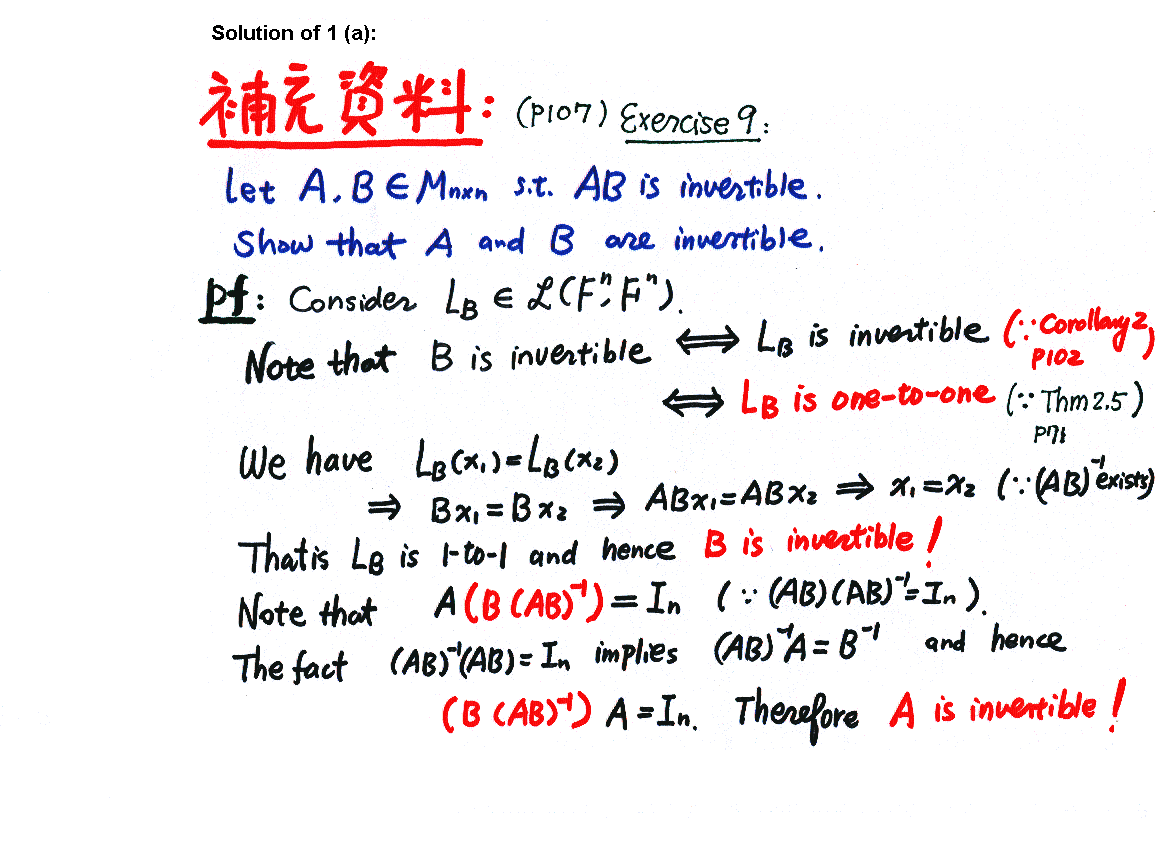 Solution of 1 (a):
補充資料: (P107) Exercise 9:
Let A, B ∈ Mn×n s.t. AB is invertible.
Show that A and B are invertible.
pf: Consider L_B ∈ ℒ(Fⁿ, Fⁿ).
Note that B is invertible ⟺ L_B is invertible (∵ Corollary 2, P102)
⟺ L_B is one-to-one (∵ Thm 2.5)
P71
We have L_B(x₁) = L_B(x₂)
⇒ Bx₁ = Bx₂ ⇒ ABx₁ = ABx₂ ⇒ x₁ = x₂ (∵ (AB)⁻¹ exists)
That is L_B is 1-to-1 and hence B is invertible!
Note that A(B(AB)⁻¹) = In (∵ (AB)(AB)⁻¹ = In).
The fact (AB)⁻¹(AB) = In implies (AB)⁻¹A = B⁻¹ and hence
(B(AB)⁻¹) A = In. Therefore A is invertible!